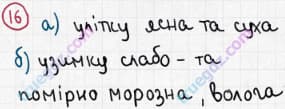 16 а) улітку ясна та суха
б) узимку слабо - та
помірно морозна, волога